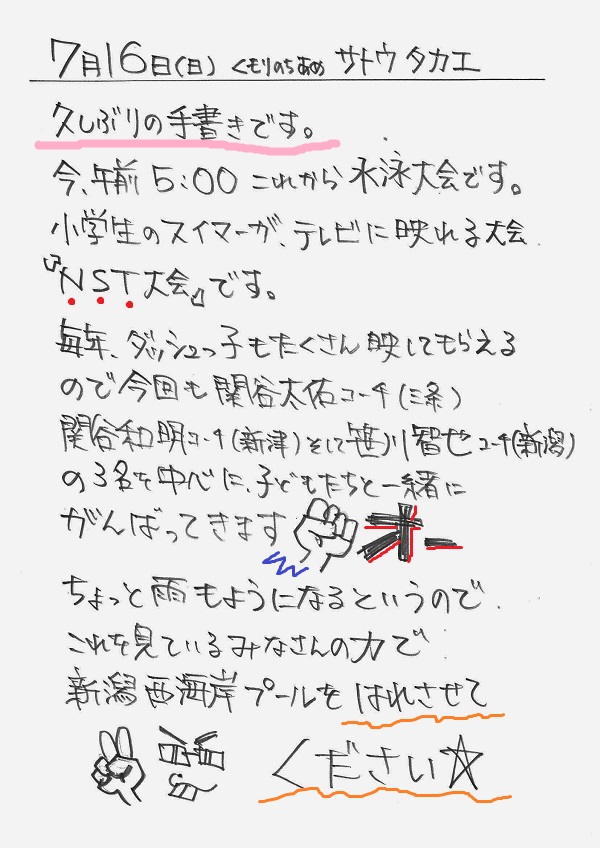 7月16日(日) くもりのちあめ サトウタカエ
久しぶりの手書きです。
今、午前 5:00 これから 水泳大会です。
小学生のスイマーが、テレビに映れる大会
『NST大会』です。
毎年、ダッシュっ子もたくさん映してもらえる
ので今回も関谷太佑コーチ(三条)
関谷和明コーチ(新津)そして笹川智也コーチ(新潟)
の3名を中心に、子どもたちと一緒に
がんばってきます オー
ちょっと雨もようになるというので
これを見ているみなさんの力で
新潟西海岸プールをはれさせて
ください☆